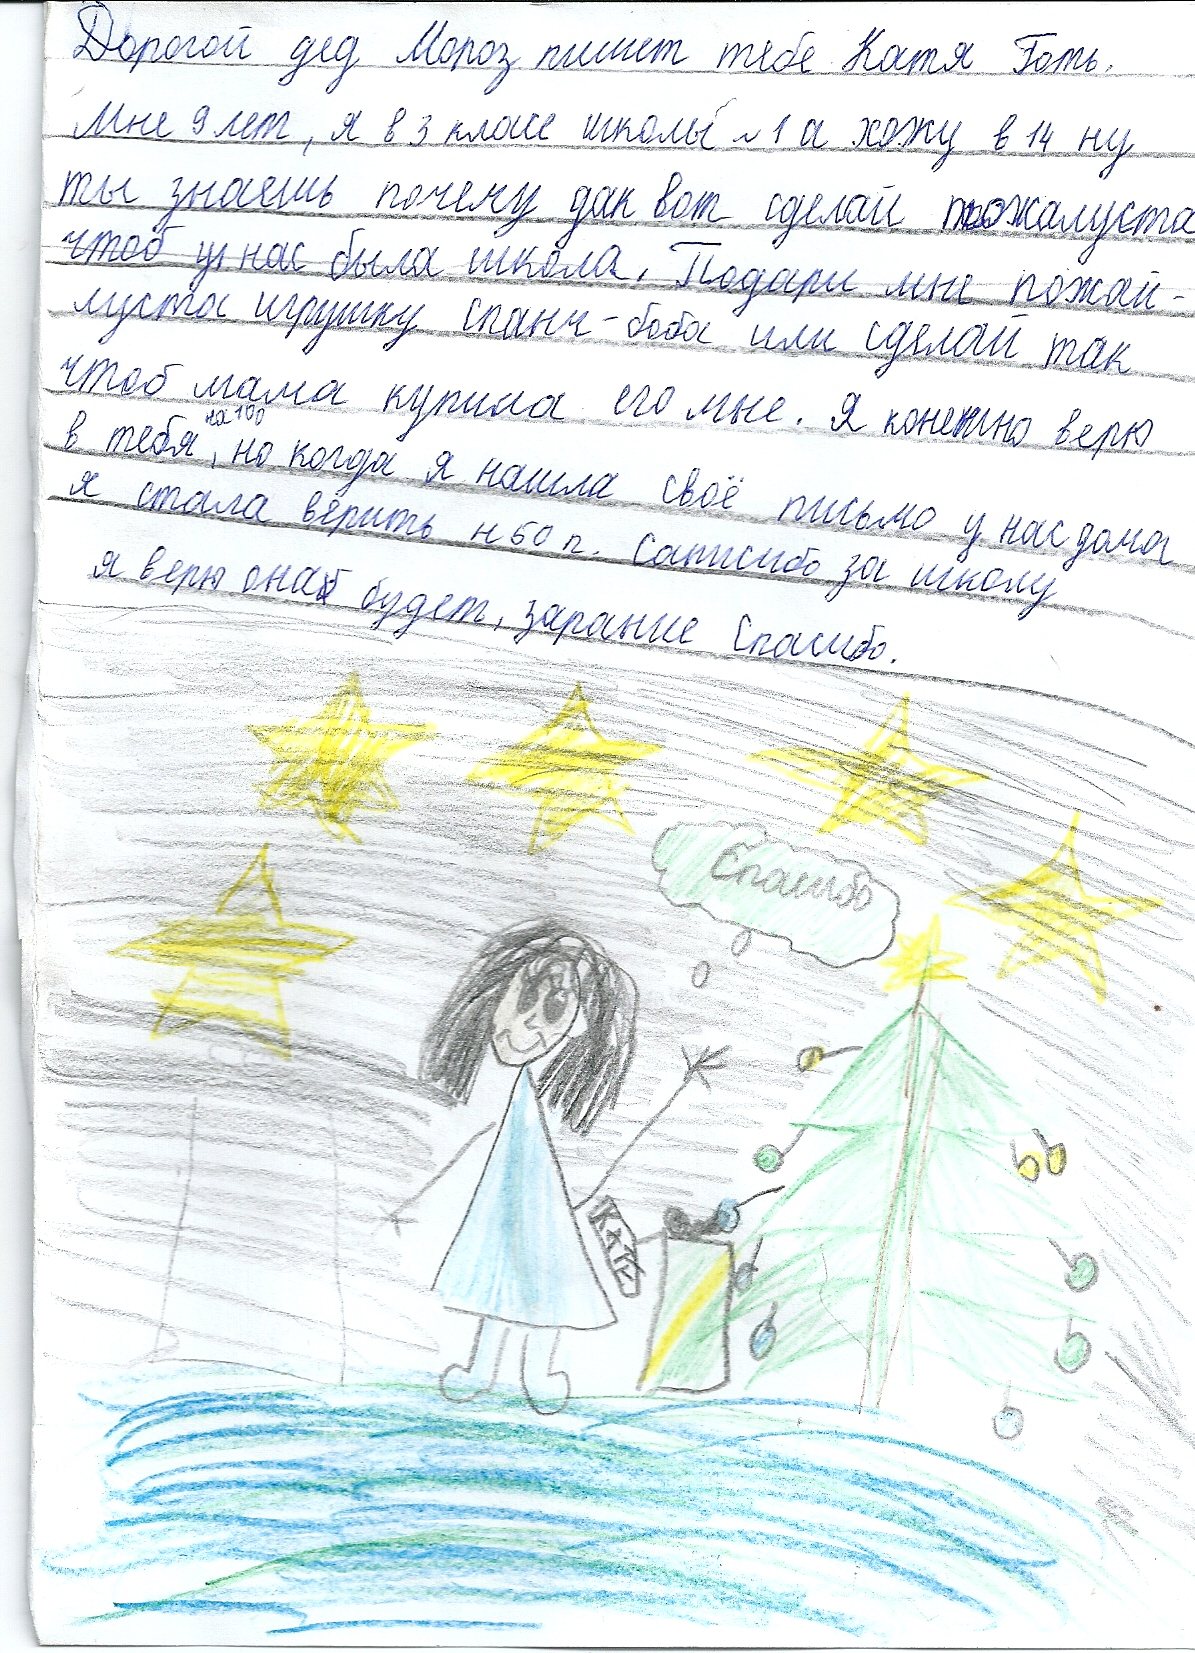 Дорогой дед Мороз пишет тебе Катя Готь.
Мне 9 лет, я в 3 класе школы №1 а хожу в 14 ну
ты знаешь почему дак вот сделай пожалуста
чтоб у нас была школа. Подари мне пожай-
луста игрушку спанч-боба или сделай так
чтоб мама купила его мне. Я конечно верю
на 100
в тебя, но когда я нашла своё письмо у нас дома
я стала верить н 50 п. Саписибо за школу
я верю она будет, зарание Спасибо.
Спасибо
КАТЕ